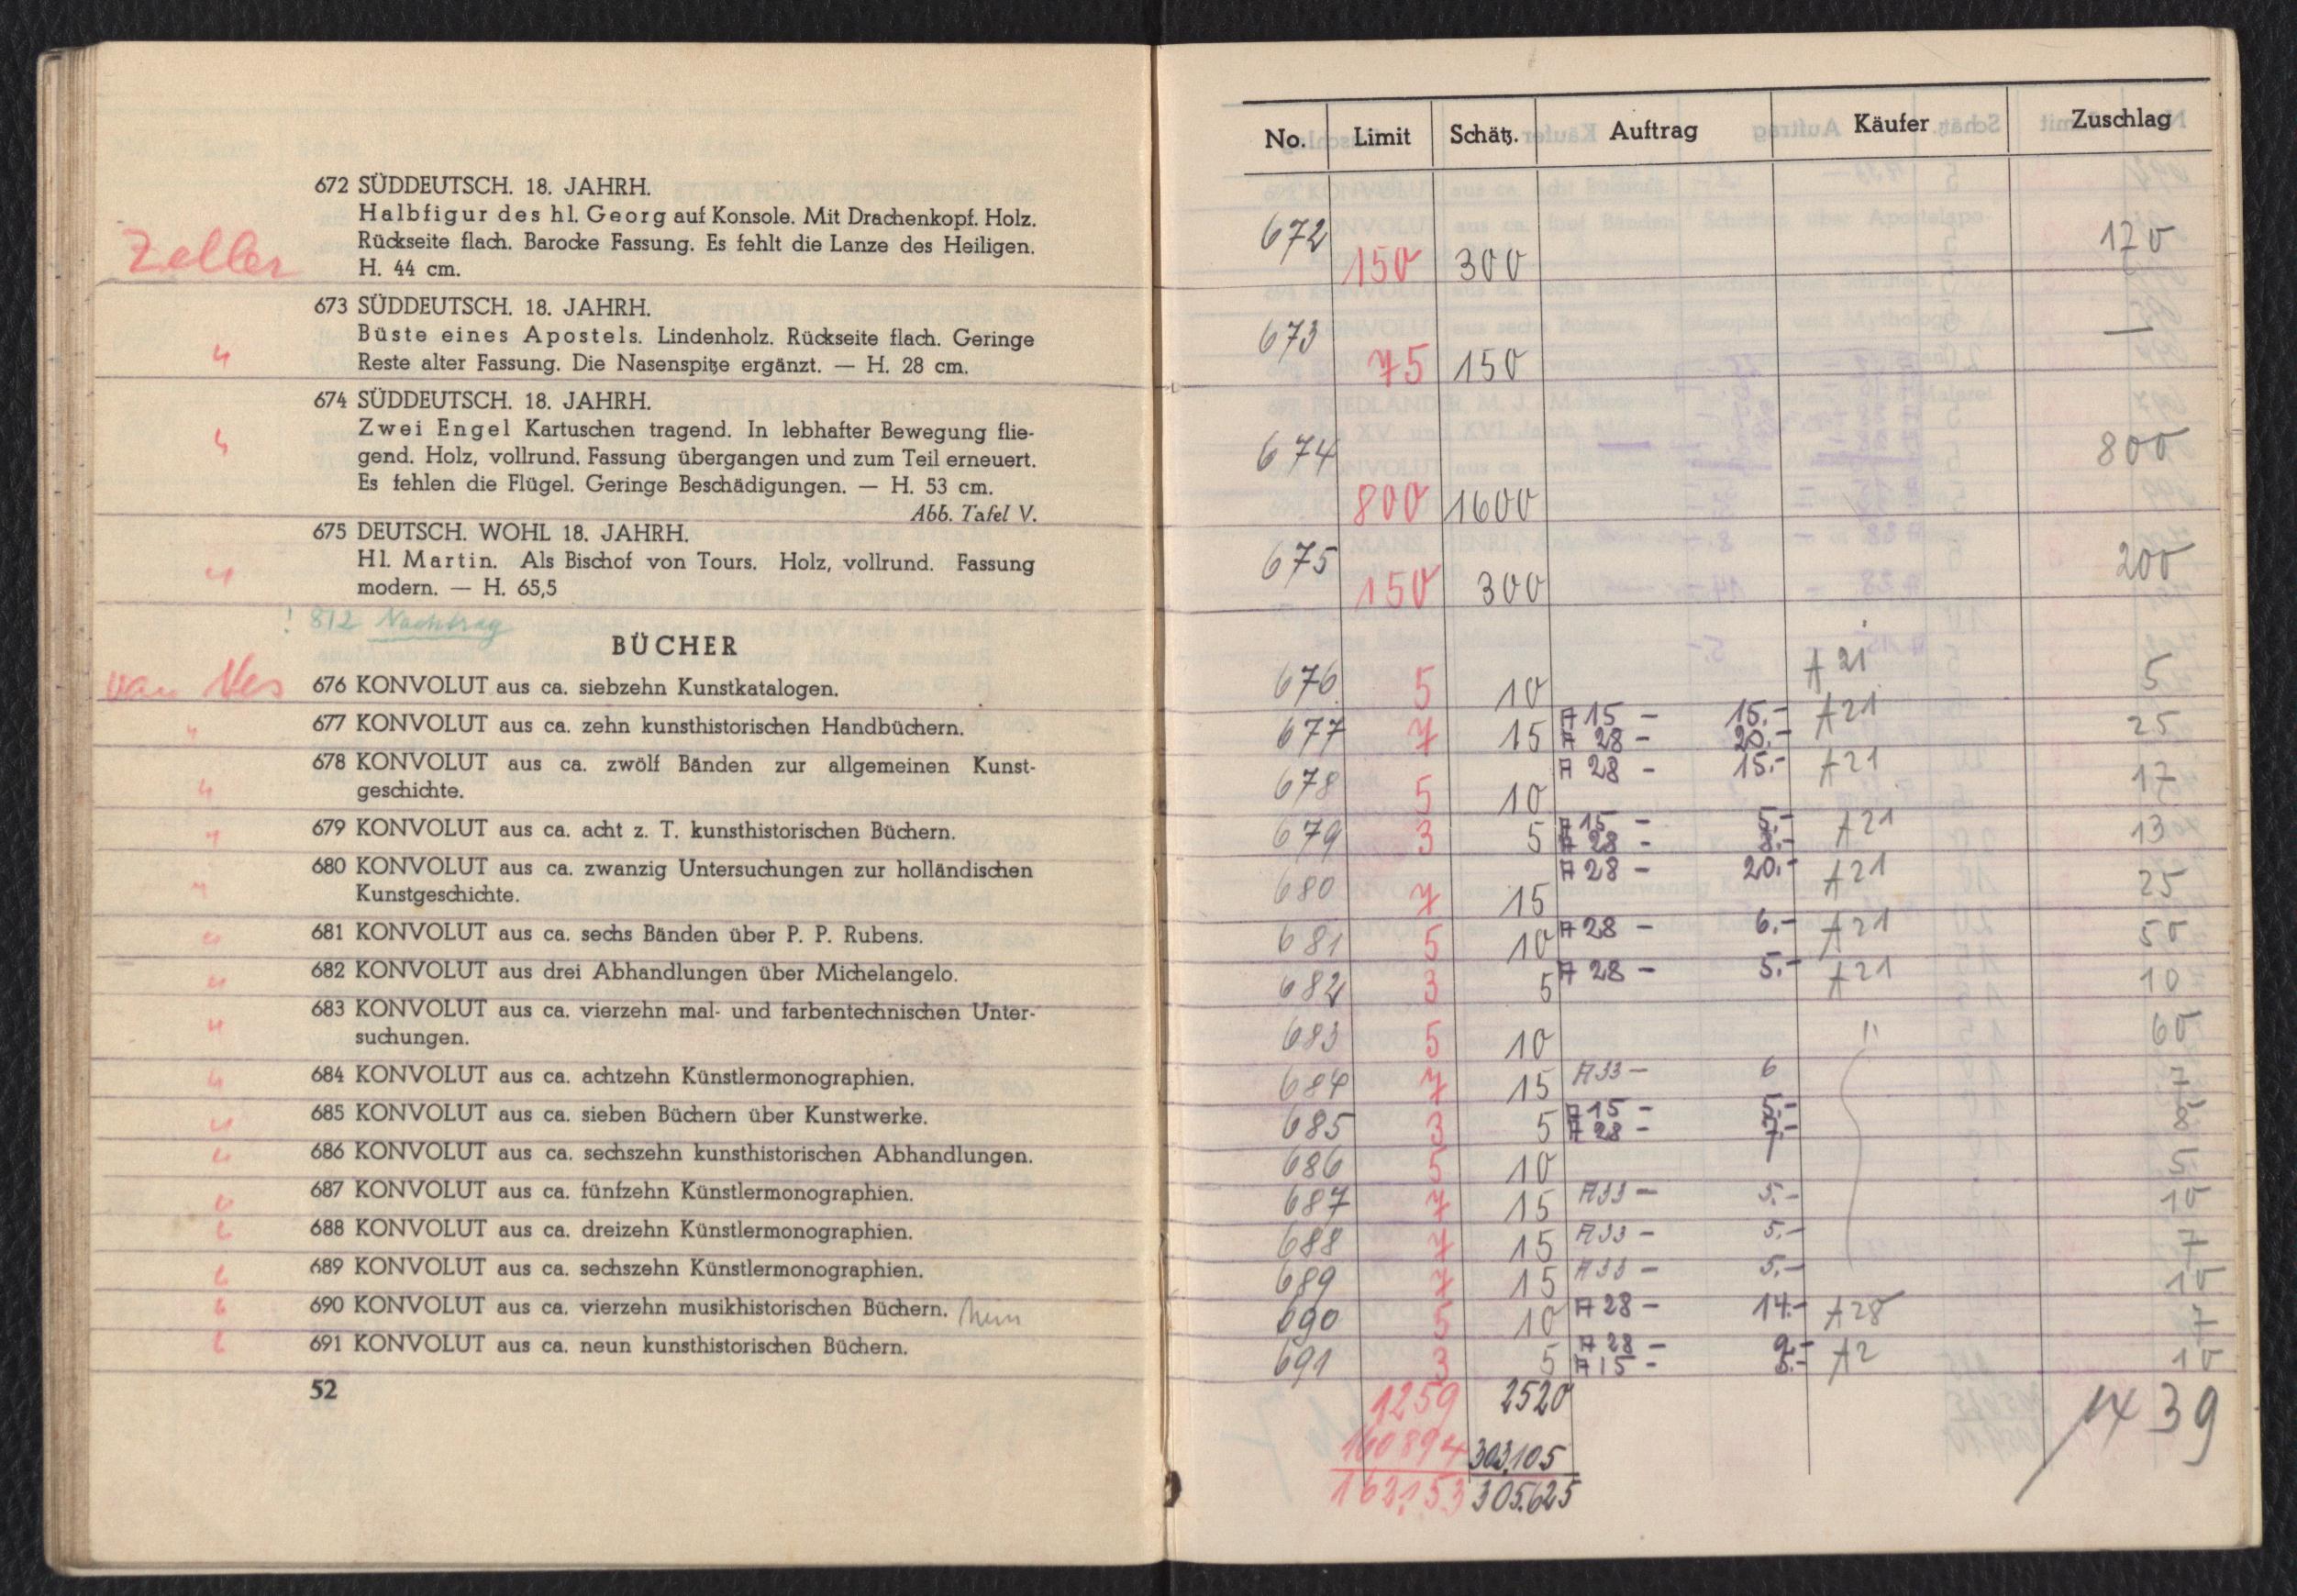 672 SÜDDEUTSCH. 18. JAHRH.
Halbfigur des hl. Georg auf Konsole. Mit Drachenkopf. Holz.
Rückseite flach. Barocke Fassung. Es fehlt die Lanze des Heiligen.
Zeller
H. 44 cm.
673 SÜDDEUTSCH. 18. JAHRH.
Büste eines Apostels. Lindenholz. Rückseite flach. Geringe
Reste alter Fassung. Die Nasenspitze ergänzt. — H. 28 cm.
674 SÜDDEUTSCH. 18. JAHRH.
Zwei Engel Kartuschen tragend. In lebhafter Bewegung flie-
gend. Holz, vollrund. Fassung übergangen und zum Teil erneuert.
Es fehlen die Flügel. Geringe Beschädigungen. — H. 53 cm.
Abb. Tafel V.
675 DEUTSCH. WOHL 18. JAHRH.
Hl. Martin. Als Bischof von Tours. Holz, vollrund. Fassung
modern. — H. 65,5
! 812 Nachtrag
BÜCHER
van Nes 676 KONVOLUT aus ca. siebzehn Kunstkatalogen.
" 677 KONVOLUT aus ca. zehn kunsthistorischen Handbüchern.
678 KONVOLUT aus ca. zwölf Bänden zur allgemeinen Kunst-
" geschichte.
" 679 KONVOLUT aus ca. acht z. T. kunsthistorischen Büchern.
680 KONVOLUT aus ca. zwanzig Untersuchungen zur holländischen
" Kunstgeschichte.
" 681 KONVOLUT aus ca. sechs Bänden über P. P. Rubens.
" 682 KONVOLUT aus drei Abhandlungen über Michelangelo.
683 KONVOLUT aus ca. vierzehn mal- und farbentechnischen Unter-
" suchungen.
" 684 KONVOLUT aus ca. achtzehn Künstlermonographien.
" 685 KONVOLUT aus ca. sieben Büchern über Kunstwerke.
" 686 KONVOLUT aus ca. sechszehn kunsthistorischen Abhandlungen.
" 687 KONVOLUT aus ca. fünfzehn Künstlermonographien.
" 688 KONVOLUT aus ca. dreizehn Künstlermonographien.
" 689 KONVOLUT aus ca. sechszehn Künstlermonographien.
" 690 KONVOLUT aus ca. vierzehn musikhistorischen Büchern.
" 691 KONVOLUT aus ca. neun kunsthistorischen Büchern.
52
No. Limit Schätz. Auftrag Käufer Zuschlag
672 150 300 120
673 75 150 —
674 800 1600 800
675 150 300 200
676 5 10 A 21 5
677 7 15 A 15 – 15.– A 21 25
A 28 – 20.–
678 5 10 A 28 – 15.– A 21 17
679 3 5 A 15 – 5.– A 21 13
A 28 – 8.–
680 7 15 A 28 – 20.– A 21 25
681 5 10 A 28 – 6.– A 21 50
682 3 5 A 28 – 5.– A 21 10
683 5 10 " 60
684 7 15 A 33 – 6 7
685 3 5 A 15 – 5.– 8
A 28 – 7.–
686 5 10 5
687 7 15 A 33 – 5.– 10
688 7 15 A 33 – 5.– 7
689 7 15 A 33 – 5.– 10
690 5 10 A 28 – 14.– A 28 7
691 3 5 A 28 – 9.– A 2 10
A 15 – 8.–
1259 2520 1439
160894 303.105
162153 305.625